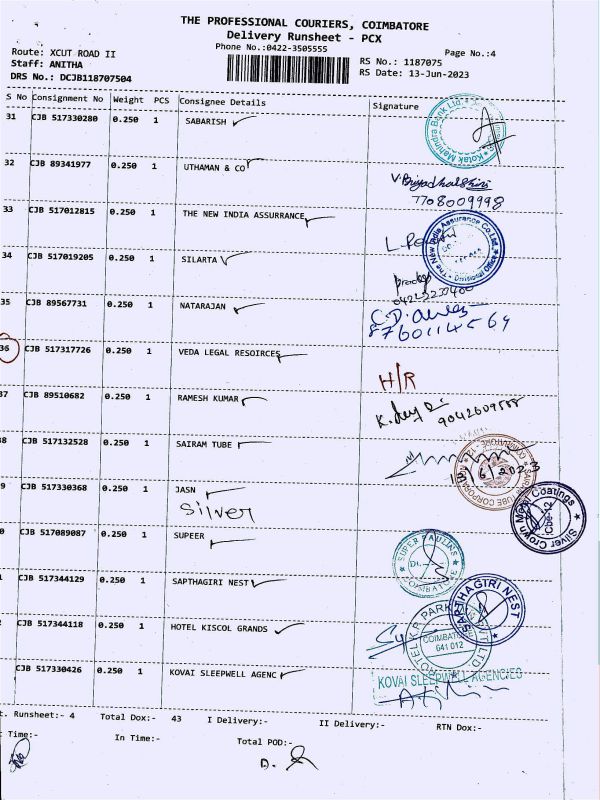 THE PROFESSIONAL COURIERS, COIMBATORE
Delivery Runsheet - PCX
Phone No.:0422-3505555
Page No.:4
Route: XCUT ROAD II
Staff: ANITHA
DRS No.: DCJB118707504
RS No.: 1187075
RS Date: 13-Jun-2023
S No Consignment No Weight PCS Consignee Details Signature
31 CJB 517330280 0.250 1 SABARISH
Kotak Mahindra Bank Ltd.
32 CJB 89341977 0.250 1 UTHAMAN & CO
7708009998
33 CJB 517012815 0.250 1 THE NEW INDIA ASSURRANCE
The New India Assurance Co. Ltd. Divisional Office
34 CJB 517019205 0.250 1 SILARTA
35 CJB 89567731 0.250 1 NATARAJAN
8760114569
36 CJB 517317726 0.250 1 VEDA LEGAL RESOIRCES
H/R
37 CJB 89510682 0.250 1 RAMESH KUMAR
38 CJB 517132528 0.250 1 SAIRAM TUBE
SAIRAM TUBE CORPORATION
9 CJB 517330368 0.250 1 JASN
Silver
Silver Crown Metal Coatings
0 CJB 517089087 0.250 1 SUPEER
SUPER
COIMBATORE
1 CJB 517344129 0.250 1 SAPTHAGIRI NEST
SAPTHAGIRI NEST
2 CJB 517344118 0.250 1 HOTEL KISCOL GRANDS
COIMBATORE
641 012
CJB 517330426 0.250 1 KOVAI SLEEPWELL AGENC
KOVAI SLEEPWELL AGENCIES
t. Runsheet:- 4 Total Dox:- 43 I Delivery:- II Delivery:- RTN Dox:-
Time:- In Time:- Total POD:-